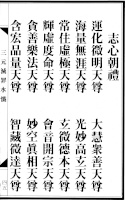 志心朝禮
運化微明天尊　大慧衆善天尊
海量無涯天尊　光妙高玄天尊
常住虛極天尊　玄微德本天尊
輝虛度命天尊　會音開宗天尊
貪善樂法天尊　妙空眞相天尊
含宏品量天尊　智藏微達天尊
三元滅罪水懺